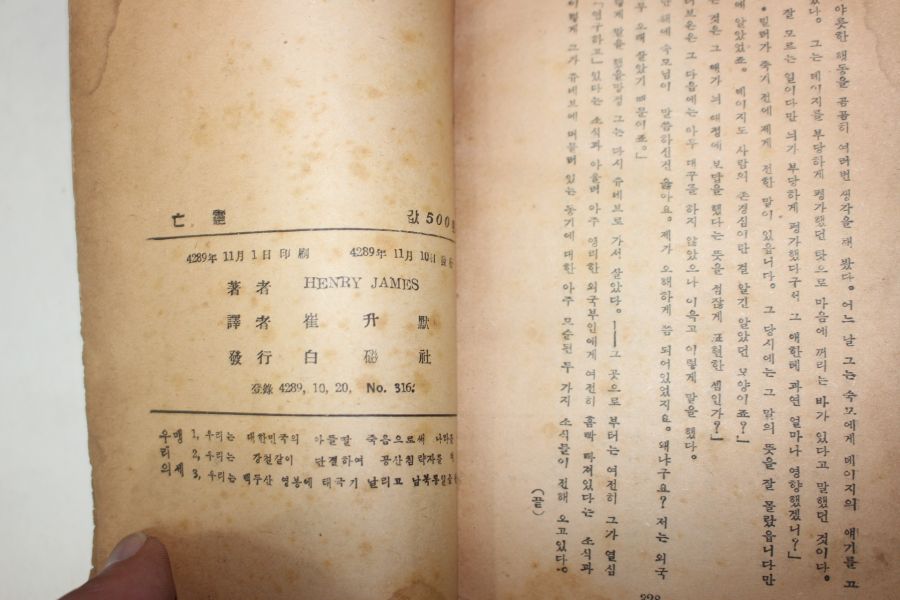 亡靈 값 500
4289年 11月 1日 印刷 4289年 11月 10日
著者 HENRY JAMES
譯者 崔升默
發行 白磁社
登錄 4289, 10, 20, No. 316.
우리의 맹세
1, 우리는 대한민국의 아들딸 죽음으로써 나라를
2, 우리는 강철같이 단결하여 공산침략자를
3, 우리는 백두산 영봉에 태국기 날리고 남북통일을
야릇한 행동을 곰곰히 여러번 생각을 해 봤다. 어느 날 그는 숙모에게 데이지의 얘기를 꼬
그는 데이지를 부당하게 평가했던 탓으로 마음에 꺼리는 바가 있다고 말했던 것이다.
잘 모르는 일이다만 늬가 부당하게 평가했다구서 그 애한테 과연 얼마나 영향했겠니?」
밀러가 죽기 전에 제게 전한 말이 있읍니다. 그 당시에는 그 말의 뜻을 잘 몰랐읍니다만
에 알았었죠. 데이지도 사람의 존경심이란 걸 알긴 알았던 모양이죠?」
것은 그 애가 늬 애정에 보답을 했다는 뜻을 점잖게 표현한 셈인가?」
그 다음에는 아무 대꾸를 하지 않았으나 이윽고 이렇게 말을 했다.
해에 숙모님이 말씀하신건 옳아요. 제가 오해하게 쯤 되어있었지요. 왜냐구요? 저는 외국
오래 살았기 때문이죠。」
말을 했을망정 그는 다시 쥬네브로 가서 살았다。——그 곳으로 부터는 여전히 그가 열심
「연구하고」 있다는 소식과 아울러 아주 영리한 외국부인에게 여전히 홈빡 빠져있다는 소식과
이렇게 그가 쥬네브에 머물러 있는 동기에 대한 아주 모순된 두 가지 소식들이 전해 오고있다。
(끝)